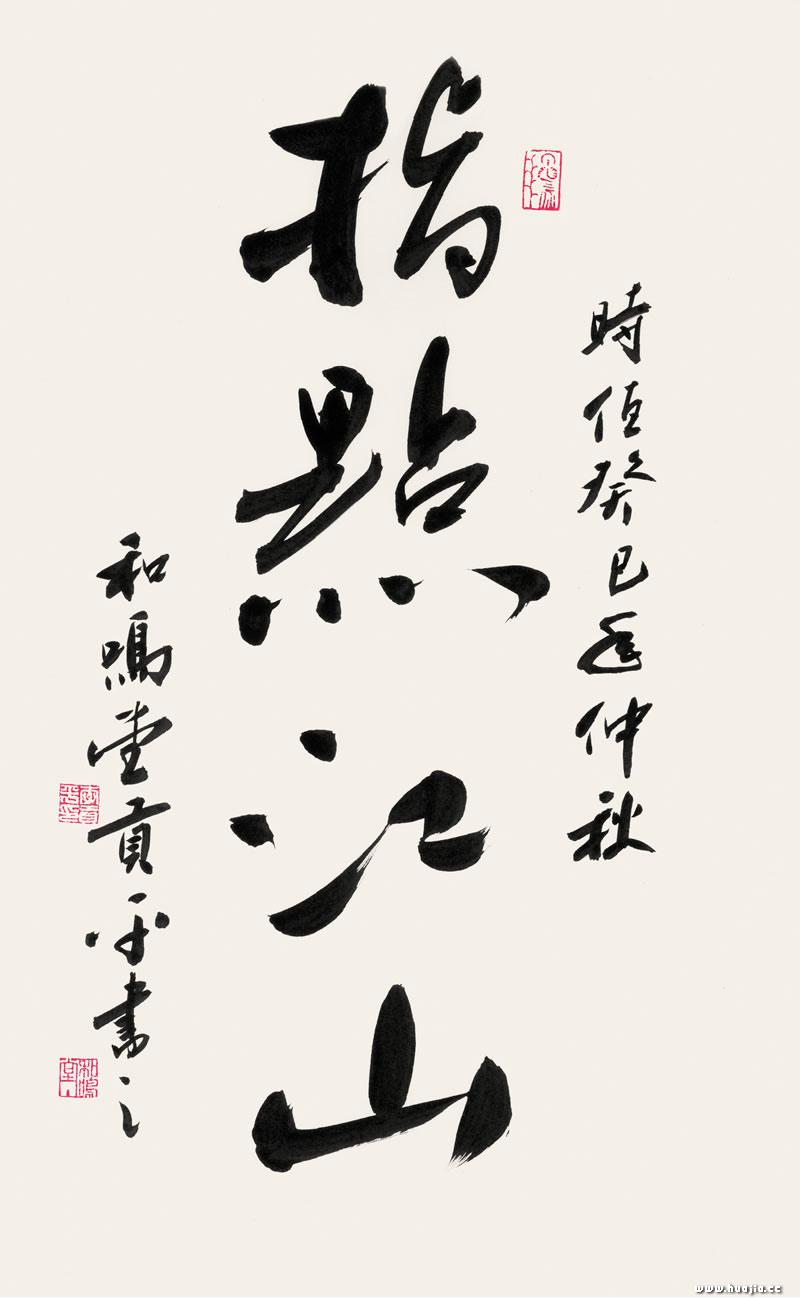 時值癸巳年仲秋
指點江山
和鳴堂貢平書之
www.huajia.cc